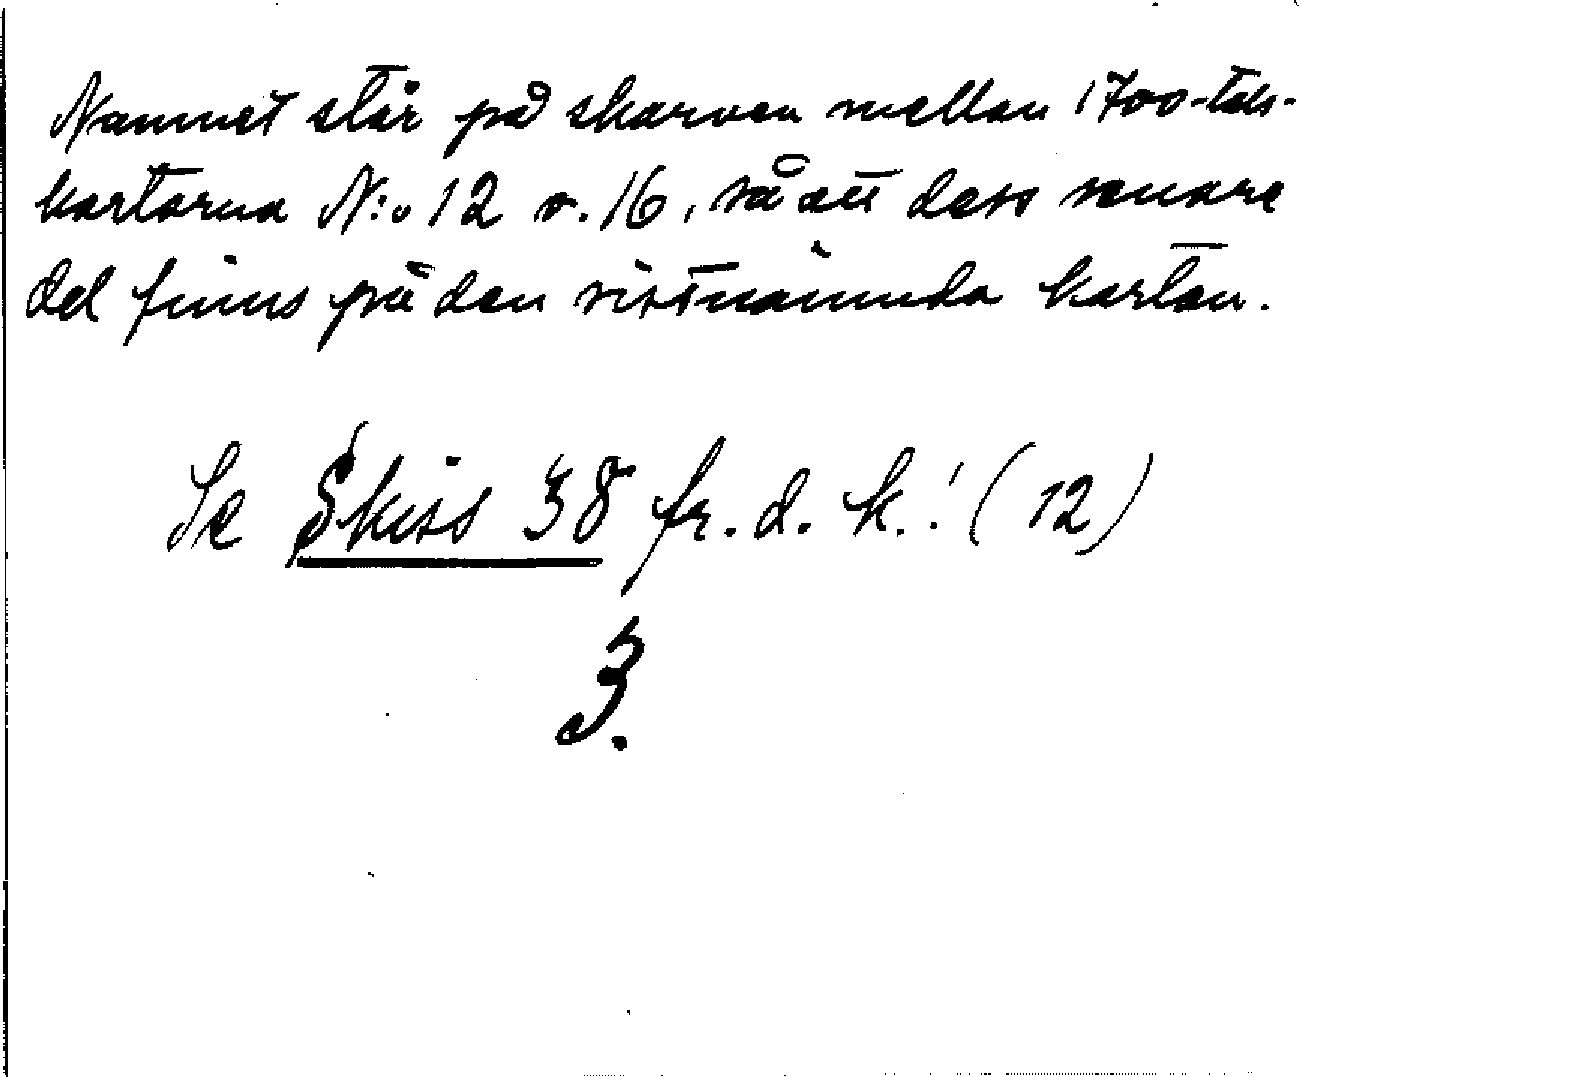 Namnet står på skarven mellan 1700-tals-
kartorna N:o 12 o. 16, så att dess senare
del finns på den sistnämnda kartan.
Se Skiss 38 fr. d. k.! (12)
3.